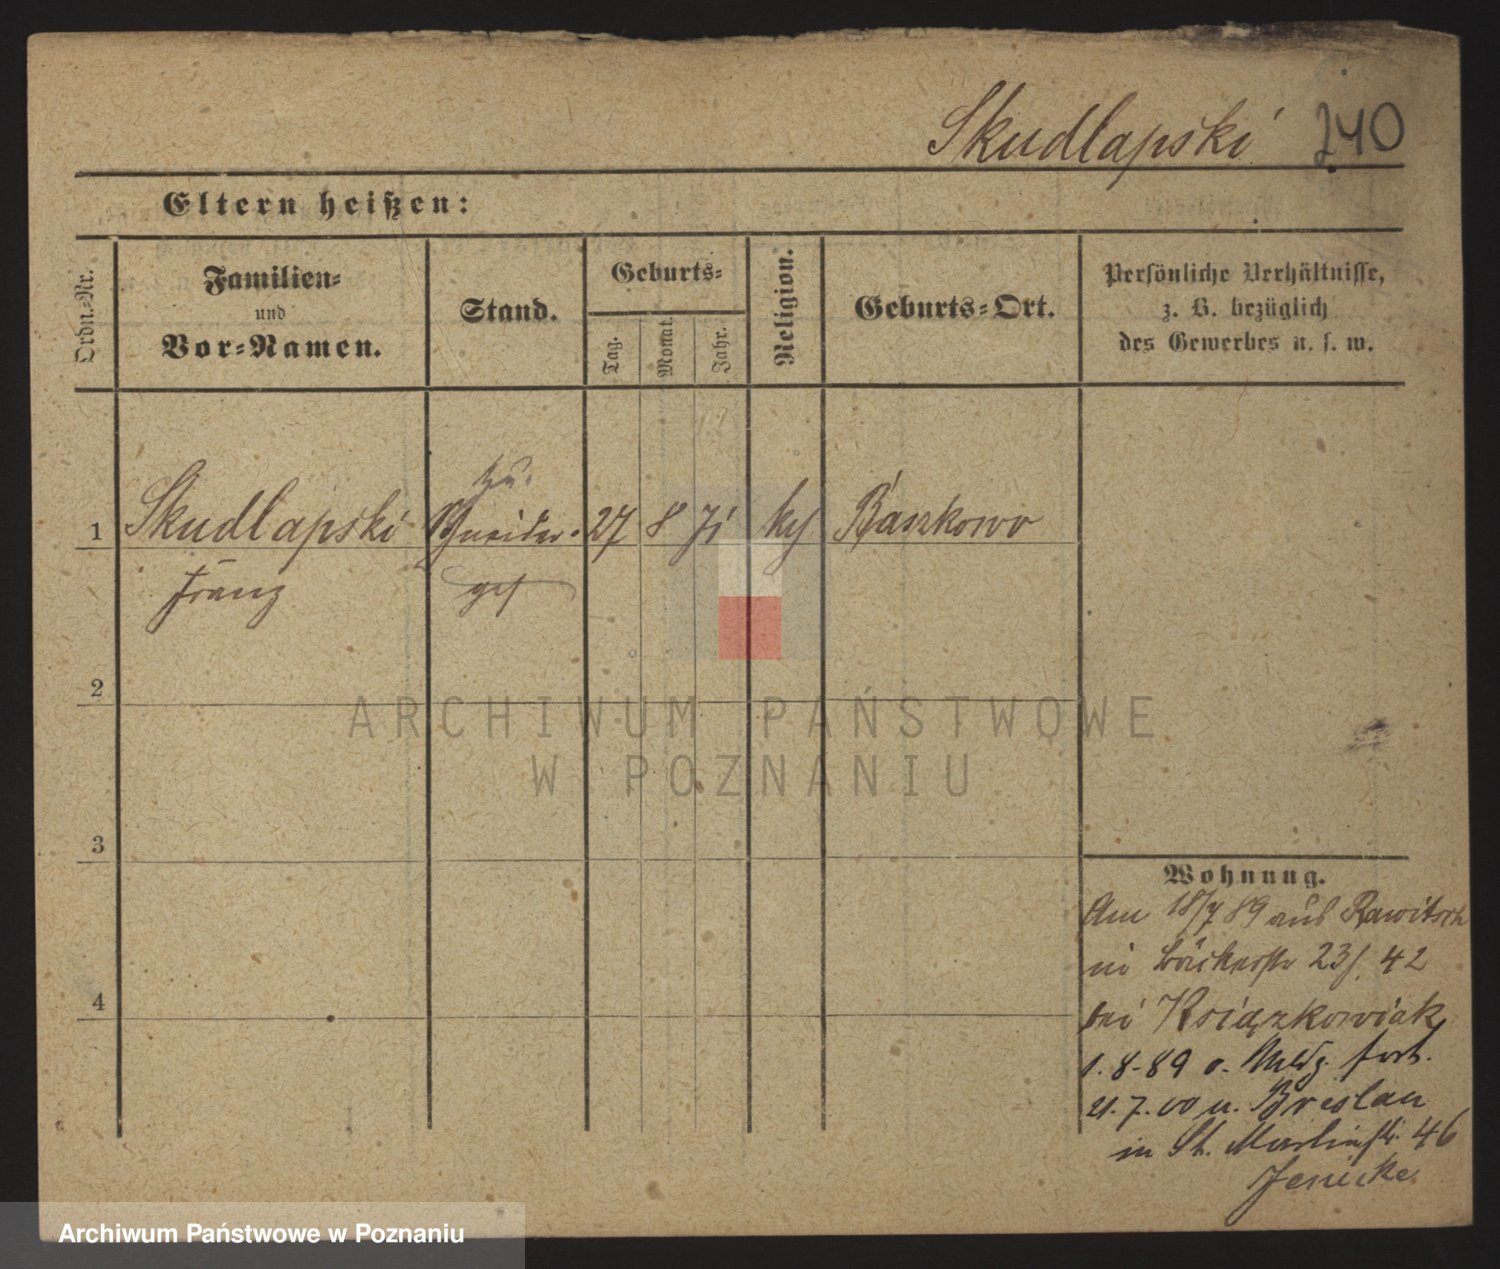 Skudlapski 240
Eltern heißen:
Ordn.-Nr.
Familien-
und
Vor-Namen.
Stand.
Geburts-
Tag.
Monat.
Jahr.
Religion.
Geburts-Ort.
Persönliche Verhältnisse,
z. B. bezüglich
des Gewerbes u. s. w.
1 Skudlapski Schneider- 27 8 71 Baszkowo
Franz ges
2
3
4
Wohnung.
Am 18/7 89 aus Rawitsch
in Bäckerstr 23/ 42
bei Książkowiak
1.8.89 o. Meldg. fort.
21.7.00 v. Breslau
in St. Martinstr. 46
Jenicke
ARCHIWUM PAŃSTWOWE
W POZNANIU
Archiwum Państwowe w Poznaniu